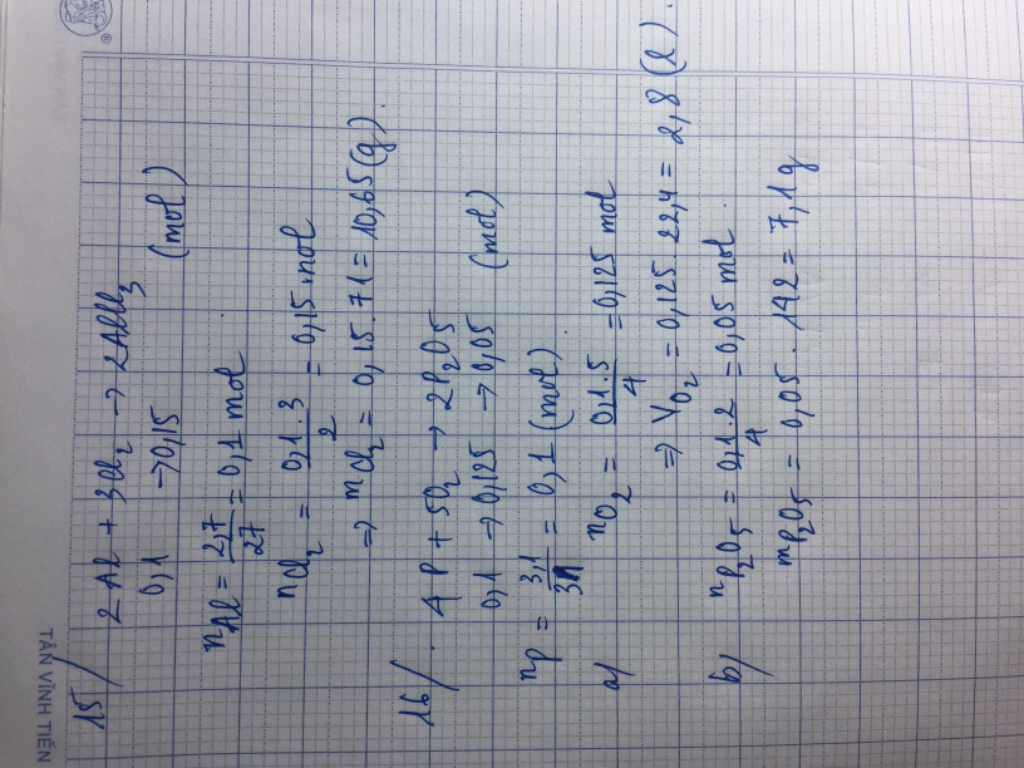 TÂN VĨNH TIẾN
®
15/ 2 Al + 3Cl2 → 2AlCl3
0,1 → 0,15 (mol)
nAl = 2,7/27 = 0,1 mol
nCl2 = 0,1 . 3/2 = 0,15 mol
⇒ mCl2 = 0,15 . 71 = 10,65 (g)
16/ 4 P + 5O2 → 2P2O5
0,1 → 0,125 → 0,05 (mol)
nP = 3,1/31 = 0,1 (mol)
a/ nO2 = 0,1 . 5/4 = 0,125 mol
⇒ VO2 = 0,125 . 22,4 = 2,8 (l).
b/ nP2O5 = 0,1 . 2/4 = 0,05 mol
mP2O5 = 0,05 . 142 = 7,1 g